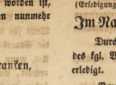 worden ist,
en nunmehr
ranken,
(Erledigung
Im Na
Durc
des kgl. B
erledigt.